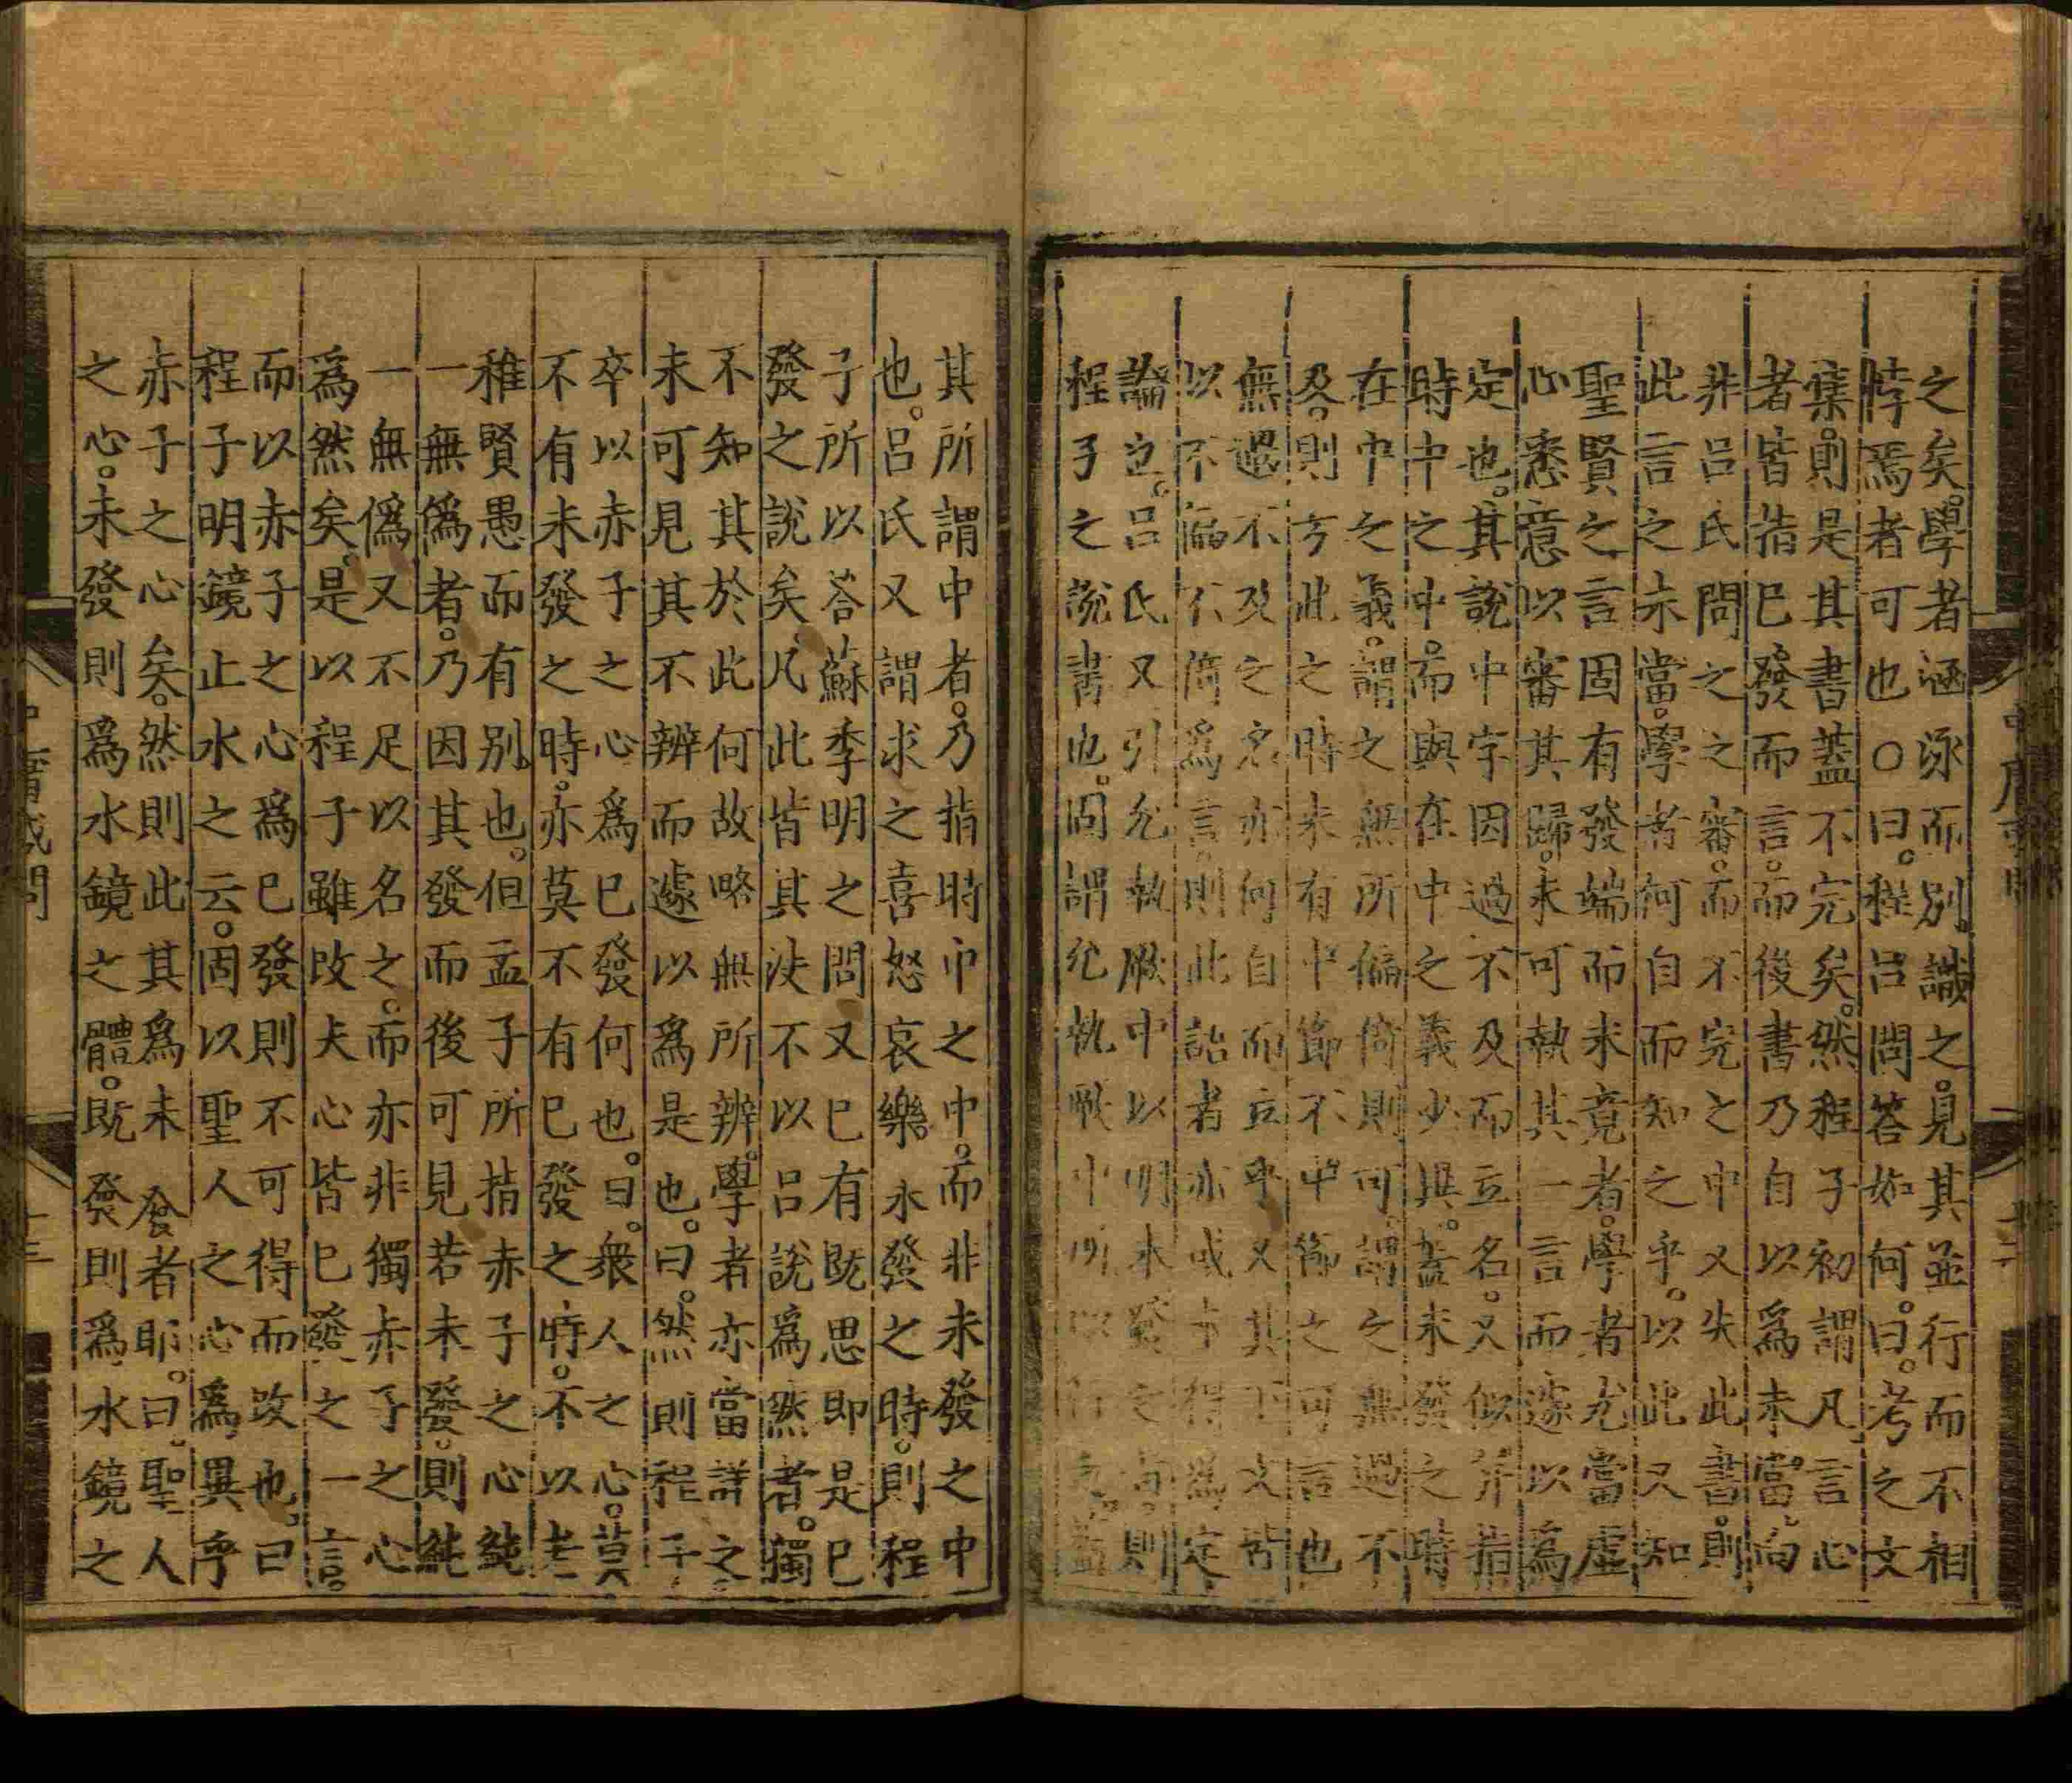 之矣。學者涵泳而別識之。見其並行而不相
悖焉者可也○曰。程呂問答如何。曰。考之文
集。則是其書蓋不完矣。然程子初謂凡言心
者皆指已發而言。而後書乃自以為未當。向
非呂氏問之之審。而不完之中又失此書。則
此言之未當。學者何自而知之乎。以此又知
聖賢之言固有發端而未竟者。學者尤當虛
心悉意以審其歸。未可執其一言而遽以為
定也。其說中字因過不及而立名。又似并指
時中之中。而與在中之義少異。蓋未發之時
在中之義。謂之無所偏倚則可。謂之無過不
及。則方此之時未有中節不中節之可言也
無過不及之名亦何自而立乎又其下文皆
以不偏不倚為言。則此語者亦或未得為定
論也。呂氏又引允執厥中以明未發之旨。則
程子之說書也。固謂允執厥中所以行之。蓋
中庸或問 十二
其所謂中者。乃指時中之中。而非未發之中
也。呂氏又謂求之喜怒哀樂未發之時。則程
子所以荅蘇季明之問又已有既思即是已
發之說矣。凡此皆其決不以呂說為然者。獨
不知其於此何故略無所辨。學者亦當詳之
未可見其不辨而遽以為是也。曰。然則程子
卒以赤子之心為已發何也。曰。衆人之心。莫
不有未發之時。亦莫不有已發之時。不以老
稚賢愚而有別也。但孟子所指赤子之心純
一無偽者。乃因其發而後可見若未發。則純
一無偽又不足以名之。而亦非獨赤子之心
爲然矣。是以程子雖改夫心皆已發之一言。
而以赤子之心爲已發則不可得而改也。曰
程子明鏡止水之云。固以聖人之心爲異乎
赤子之心矣。然則此其爲未發者耶。曰。聖人
之心。未發則爲水鏡之體。既發則爲水鏡之
中庸或問 十三